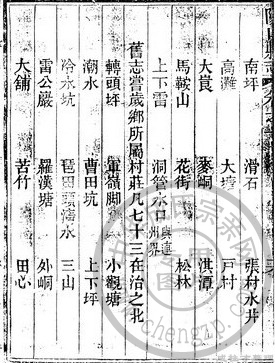 南坪 滑石 張村水井
高灘 大塘 戸村
大崀 麥峒 淇潭
馬鞍山 花街 松林
上下雷 洞管水口與連州界
舊志嘗歲鄉所屬村莊凡七十三在治之北
轉頭坪 軍嶺脚 小觀塘
潮水 曹田坑 上下坪
冷水坑 琶田頭濤水 三山
雷公巖 羅漢塘 外峒
大舖 苦竹 田心